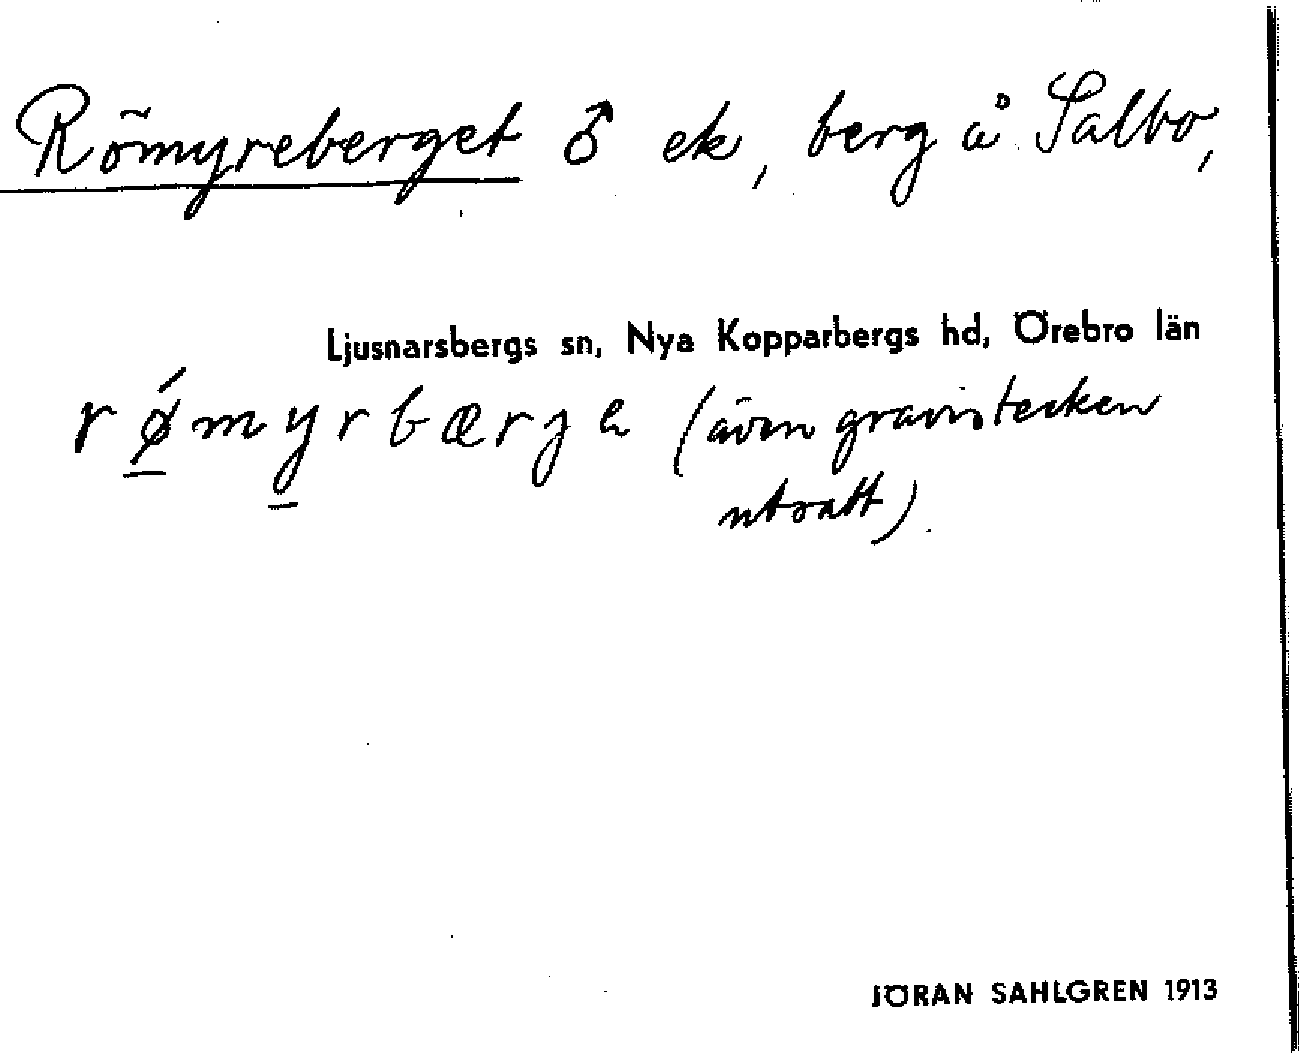 Römyreberget ♂ ek, berg å Salbo,
Ljusnarsbergs sn, Nya Kopparbergs hd, Örebro län
rǿmyrbærjə (även gravistecken
utsatt).
JÖRAN SAHLGREN 1913